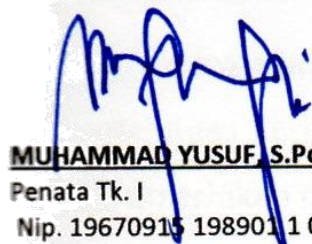 MUHAMMAD YUSUF, S.Pd
Penata Tk. I
Nip. 19670915 198901 1 0